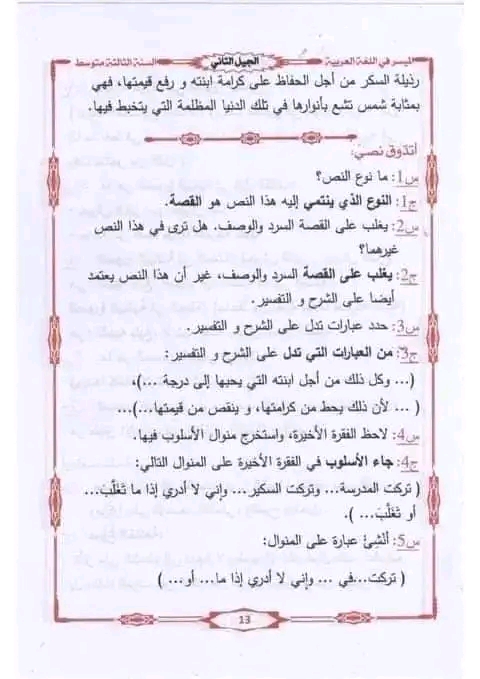 الميسر في اللغة العربية الجيل الثاني السنة الثالثة متوسط
رذيلة السكر من أجل الحفاظ على كرامة ابنته و رفع قيمتها، فهي
بمثابة شمس تشع بأنوارها في تلك الدنيا المظلمة التي يتخبط فيها.
أتذوق نصي:
س1: ما نوع النص؟
ج1: النوع الذي ينتمي إليه هذا النص هو القصة.
س2: يغلب على القصة السرد والوصف، هل ترى في هذا النص
غيرهما؟
ج2: يغلب على القصة السرد والوصف، غير أن هذا النص يعتمد
أيضا على الشرح و التفسير.
س3: حدد عبارات تدل على الشرح و التفسير.
ج3: من العبارات التي تدل على الشرح و التفسير:
(... وكل ذلك من أجل ابنته التي يحبها إلى درجة ...)،
(... لأن ذلك يحط من كرامتها، و ينقص من قيمتها...)...
س4: لاحظ الفقرة الأخيرة، واستخرج منوال الأسلوب فيها.
ج4: جاء الأسلوب في الفقرة الأخيرة على المنوال التالي:
( تركت المدرسة... وتركت السكير... وإني لا أدري إذا ما تَغَلَّبَ...
أو تَغَلَّبَ... ).
س5: أنشِئ عبارة على المنوال:
( تركت...في ... وإني لا أدري إذا ما... أو... )
13